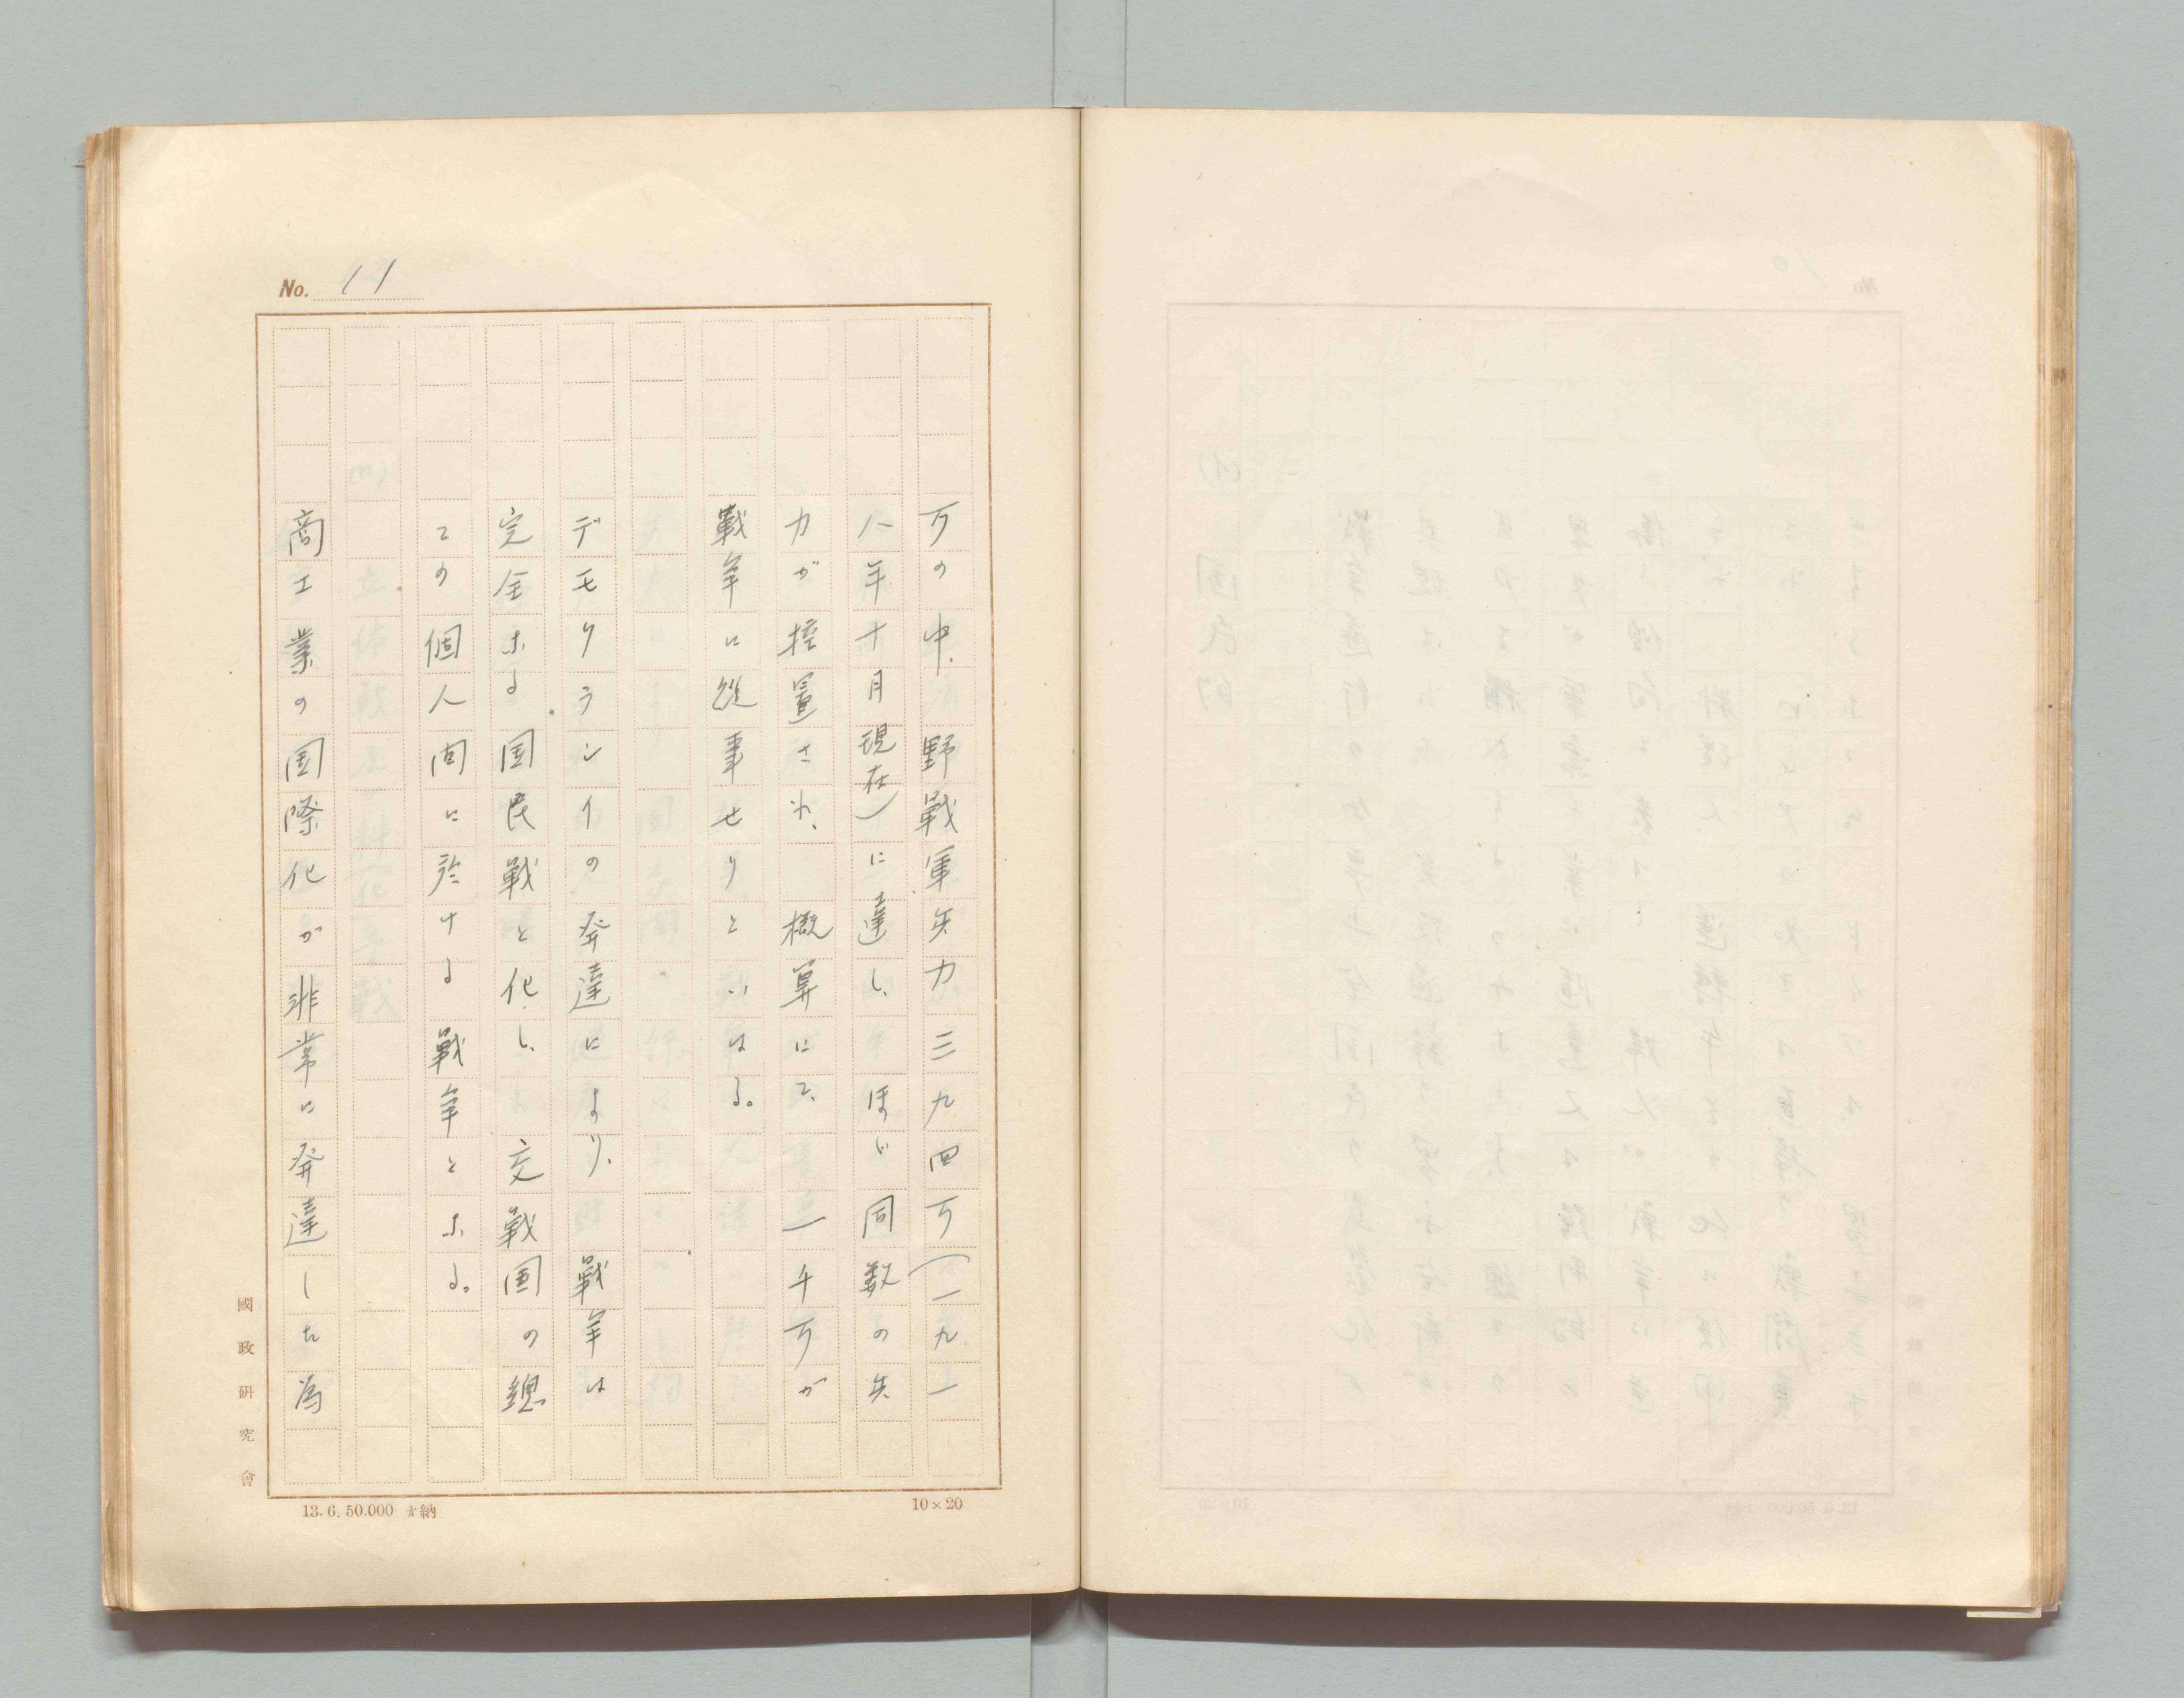 No. 11
万の中、野戦軍兵力三九四万(一九一
八年十月現在)に達し、ほゞ同数の兵
力が控置され、概算にて、一千万が
戦争に従事せりといはる。
デモクラシイの発達により、戦争は
完全なる国民戦と化し、交戦国の総
ての個人間に於ける戦争となる。
商工業の国際化が非常に発達した為
國政研究會
13.6.50.000 納
10×20